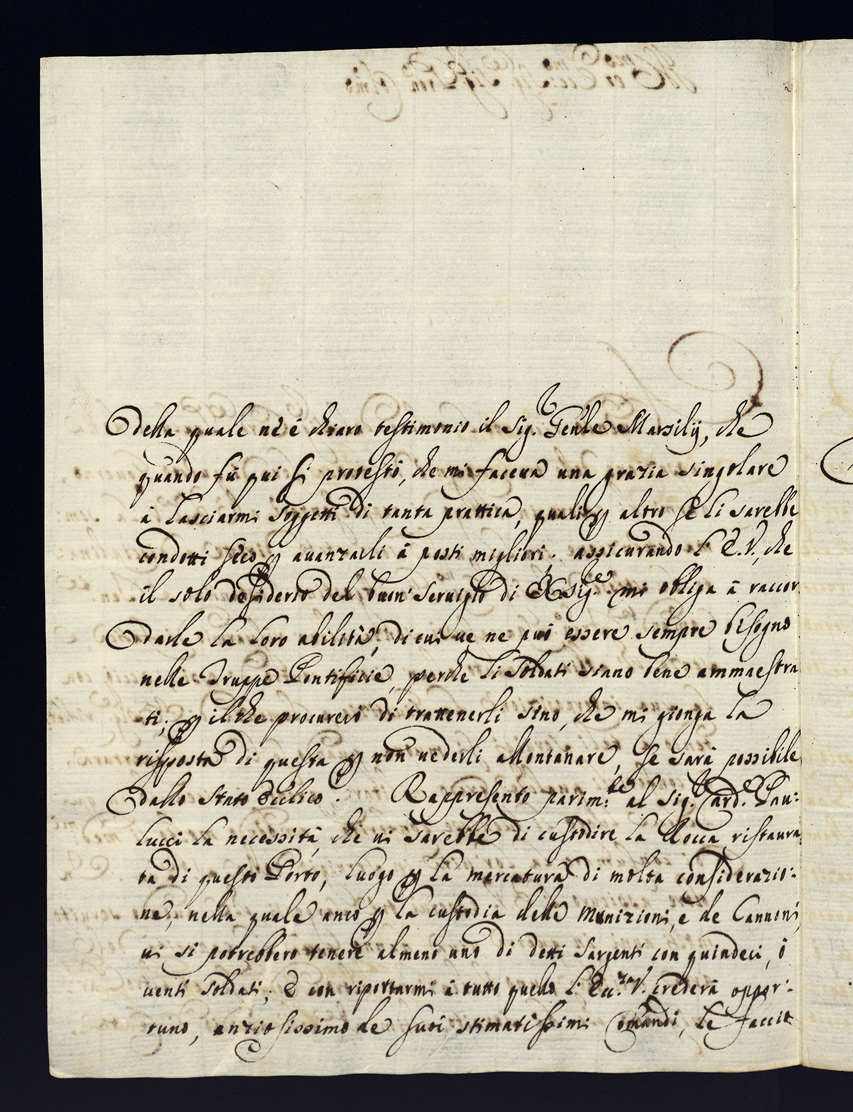 della quale nè è chiaro testimonio il Sig. Gen̄le Marsilij, che
quando fù qui si protestò, che mi faceua una grazia singolare
à lasciarmi soggetti di tanta prattica, quali p altro se li sarebbe
condotti seco p auanzarli à posti migliori. assicurando l'E.V., che
il solo desiderio del buon seruigio di mi obliga à raccor
darle la loro abilità, di cui ue ne può essere sempre bisogno
nelle Truppe Pontificie, perche li Soldati siano bene ammaestra
ti; p il che procurerò di trattenerli sino, che mi gionga la
risposta di questa p non uederli allontanare, se sarà possibile
dallo stato Ecclico. Rappresento parim.te al Sig. Card. Pau:
lucci la necessità, che ui sarebbe di custodire la Rocca ristaura
ta di questo Porto, luogo p la mercatura di molta considerazio:
ne, nella quale anco p la custodia delle munizioni, e de Cannoni
ui si potrebbero tenere almeno uno di detti Sargenti con quindeci, ò
uenti Soldati; E con riportarmi à tutto quello l' V. crederà oppor:
tuno, ansiosissimo de suoi stimatissimi Comandi, le faccio